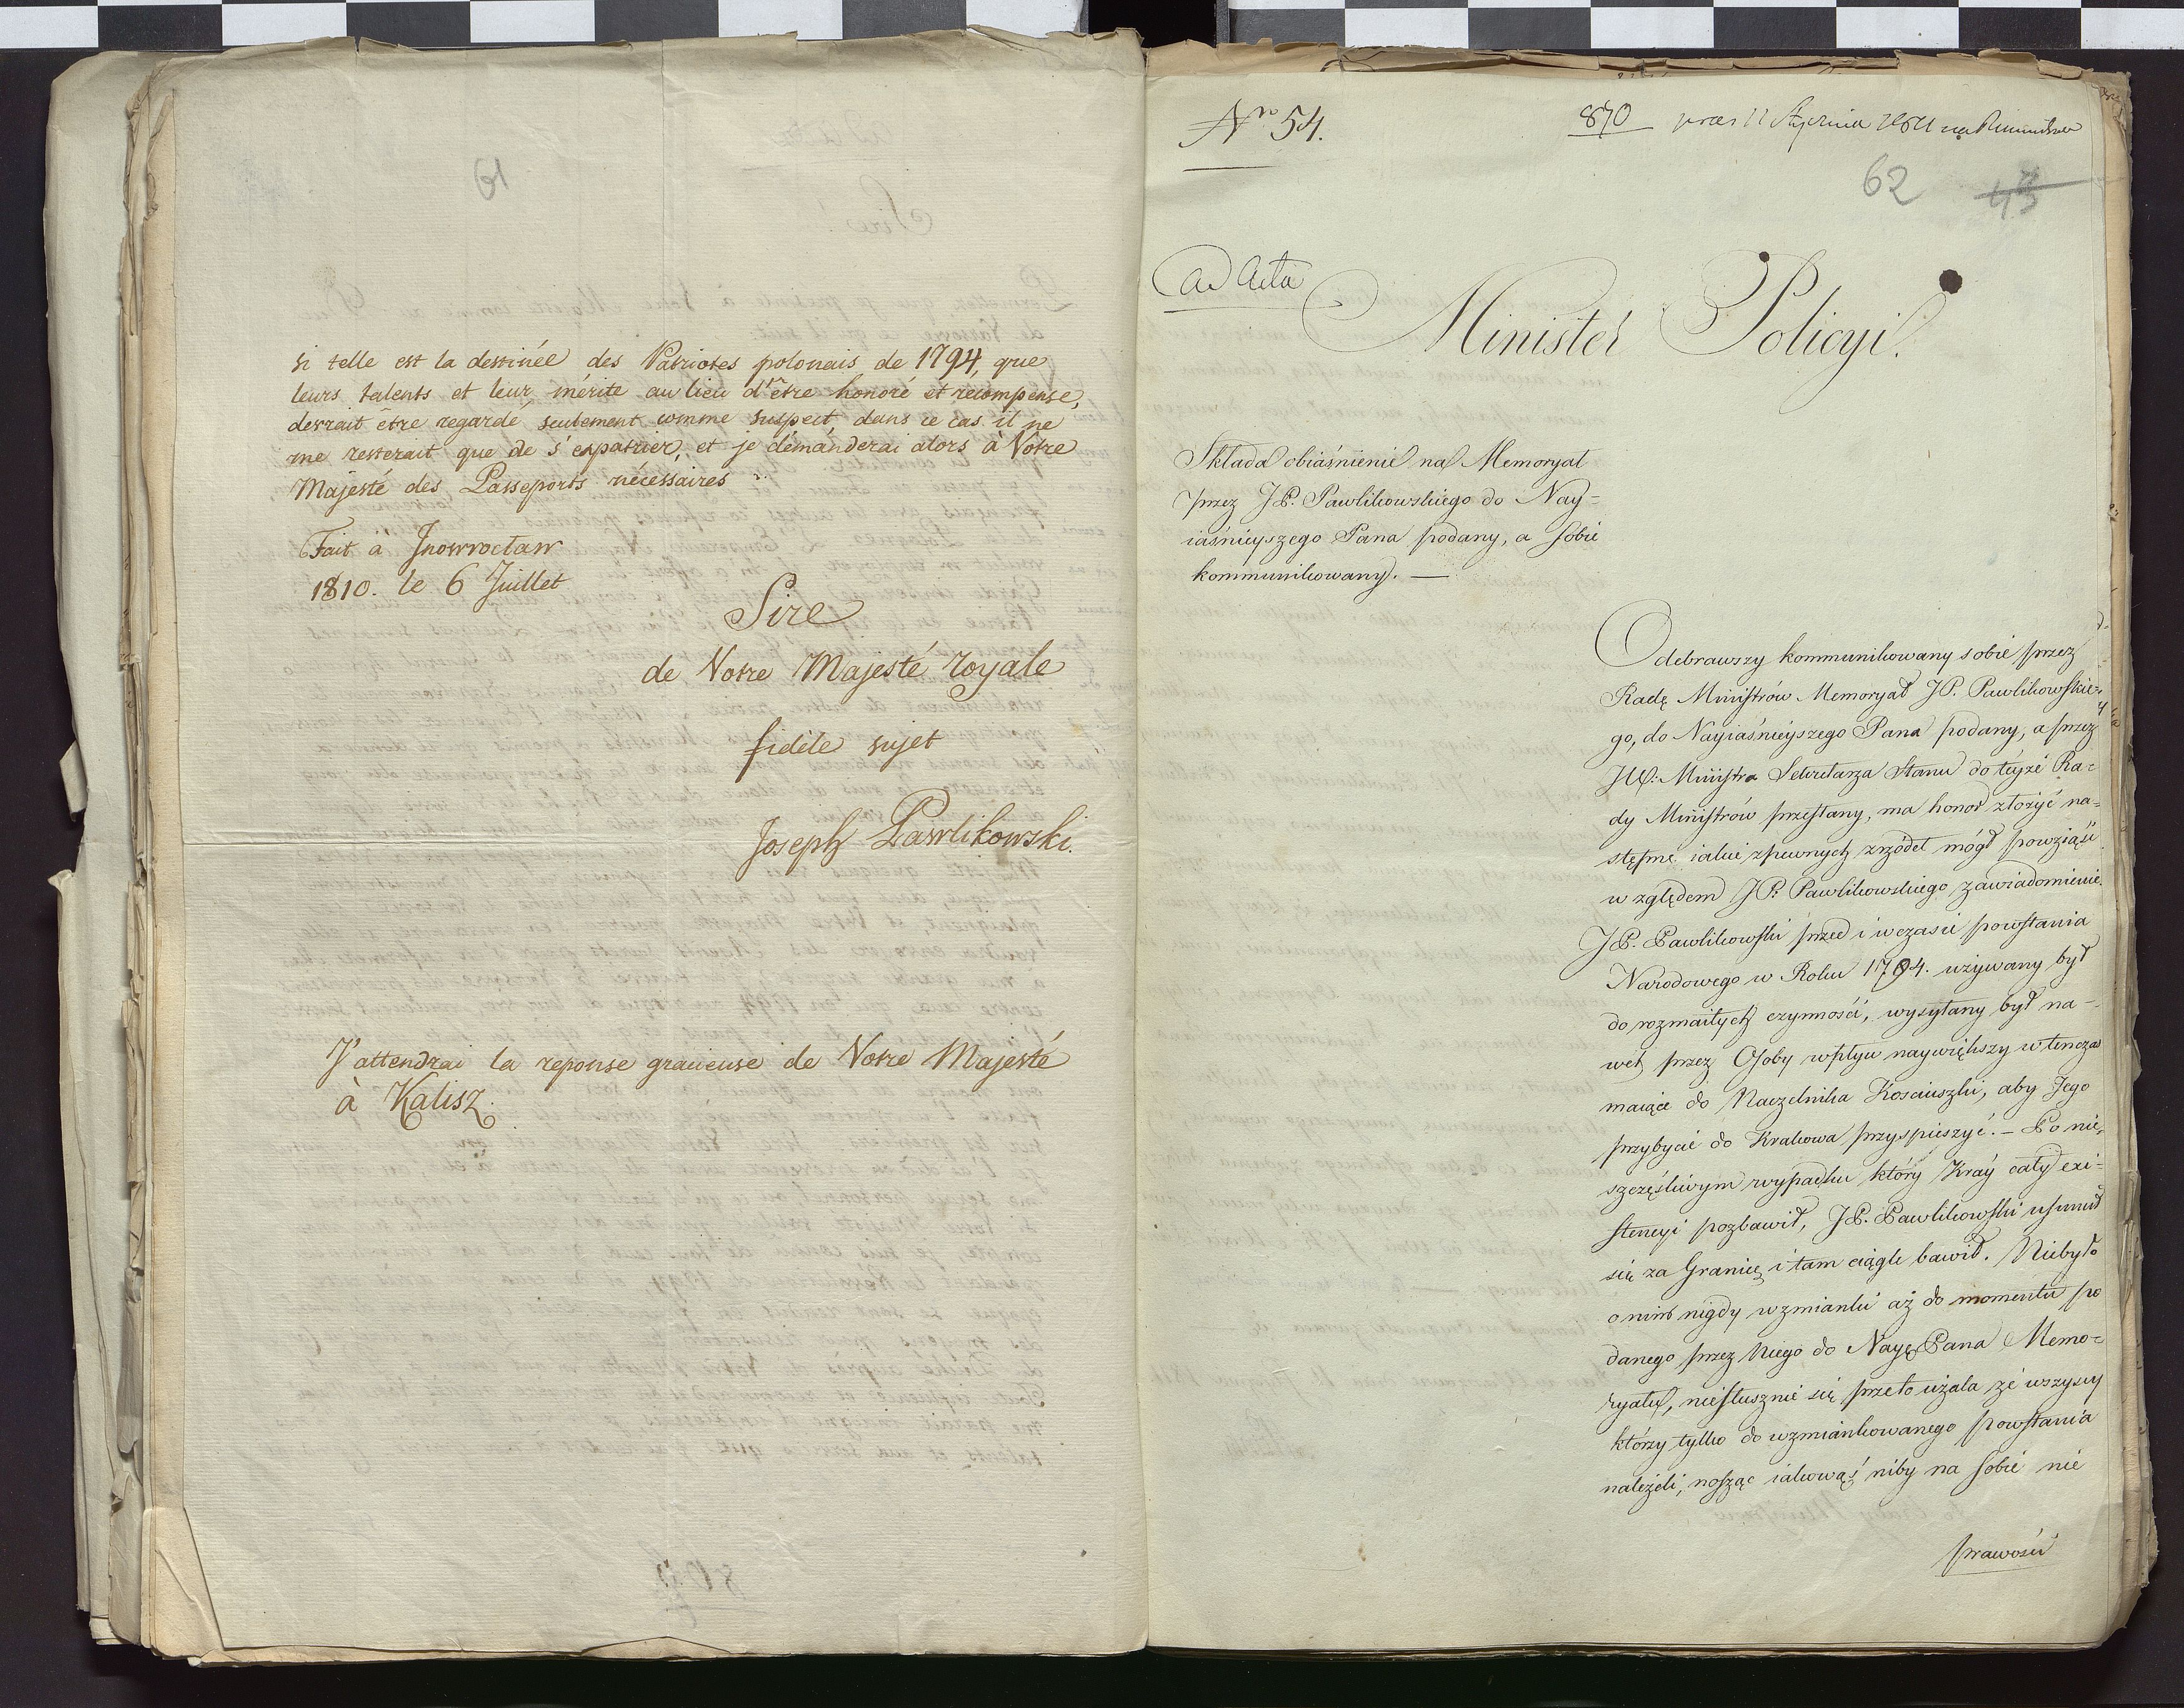 si telle est la destinée des Patriotes polonais de 1794, que
leurs talents et leur mérite au lieu d'être honoré et recompense,
devrait être regardé seulement comme suspect, dans ce cas il ne
me resterait que de s'expatrier, et je démanderai alors à Votre
Majesté des Passeports nécessaires
Fait à Jnowrocław
1810. le 6 Juillet
Sire
de Votre Majesté royale
fidèle sujet
Joseph Pawlikowski.
J'attendrai la reponse gracieuse de Votre Majesté
à Kalisz.
No 54.
870 prez 11 Stycznia 1811 na
62 43
ad Acta
Minister Policyi.
Składa obiaśnienie na Memoryał
przez JP. Pawlikowskiego do Nay=
iaśnieyszego Pana podany, a sobie
kommunikowany. —
Odebrawszy kommunikowany sobie przez
Radę Ministrów Memoryał JP. Pawlikowskie=
go, do Nayiaśnieyszego Pana podany, a przez
JW: Ministra Sekretarza Stanu do teyże Ra=
dy Ministrów przesłany, ma honor złożyć na=
stępne iakie z pewnych zrzódeł mógł powziąść
względem JP. Pawlikowskiego zawiadomienie.
JP. Pawlikowski przed i w czasie powstania
Narodowego w Roku 1794. używany był
do rozmaitych czynności, wysyłany był na-
wet przez Osoby wpływ naywiększy wtenczas
maiące do Naczelnika Kosciuszki, aby Jego
przybycie do Krakowa przyspieszyć. – Po nie,
szczęśliwym wypadku który Kray cały exi=
stencyi pozbawił, JP. Pawlikowski usunął
się za Granicę i tam ciągle bawił. Niebyło
o nim nigdy wzmianki aż do momentu po
danego przez Niego do Nayś Pana Memo=
ryału, niesłusznie się przeto użala że wszyscy
którzy tylko do wzmiankowanego powstania
należeli, nosząc iakowąś niby na sobie nie
prawość